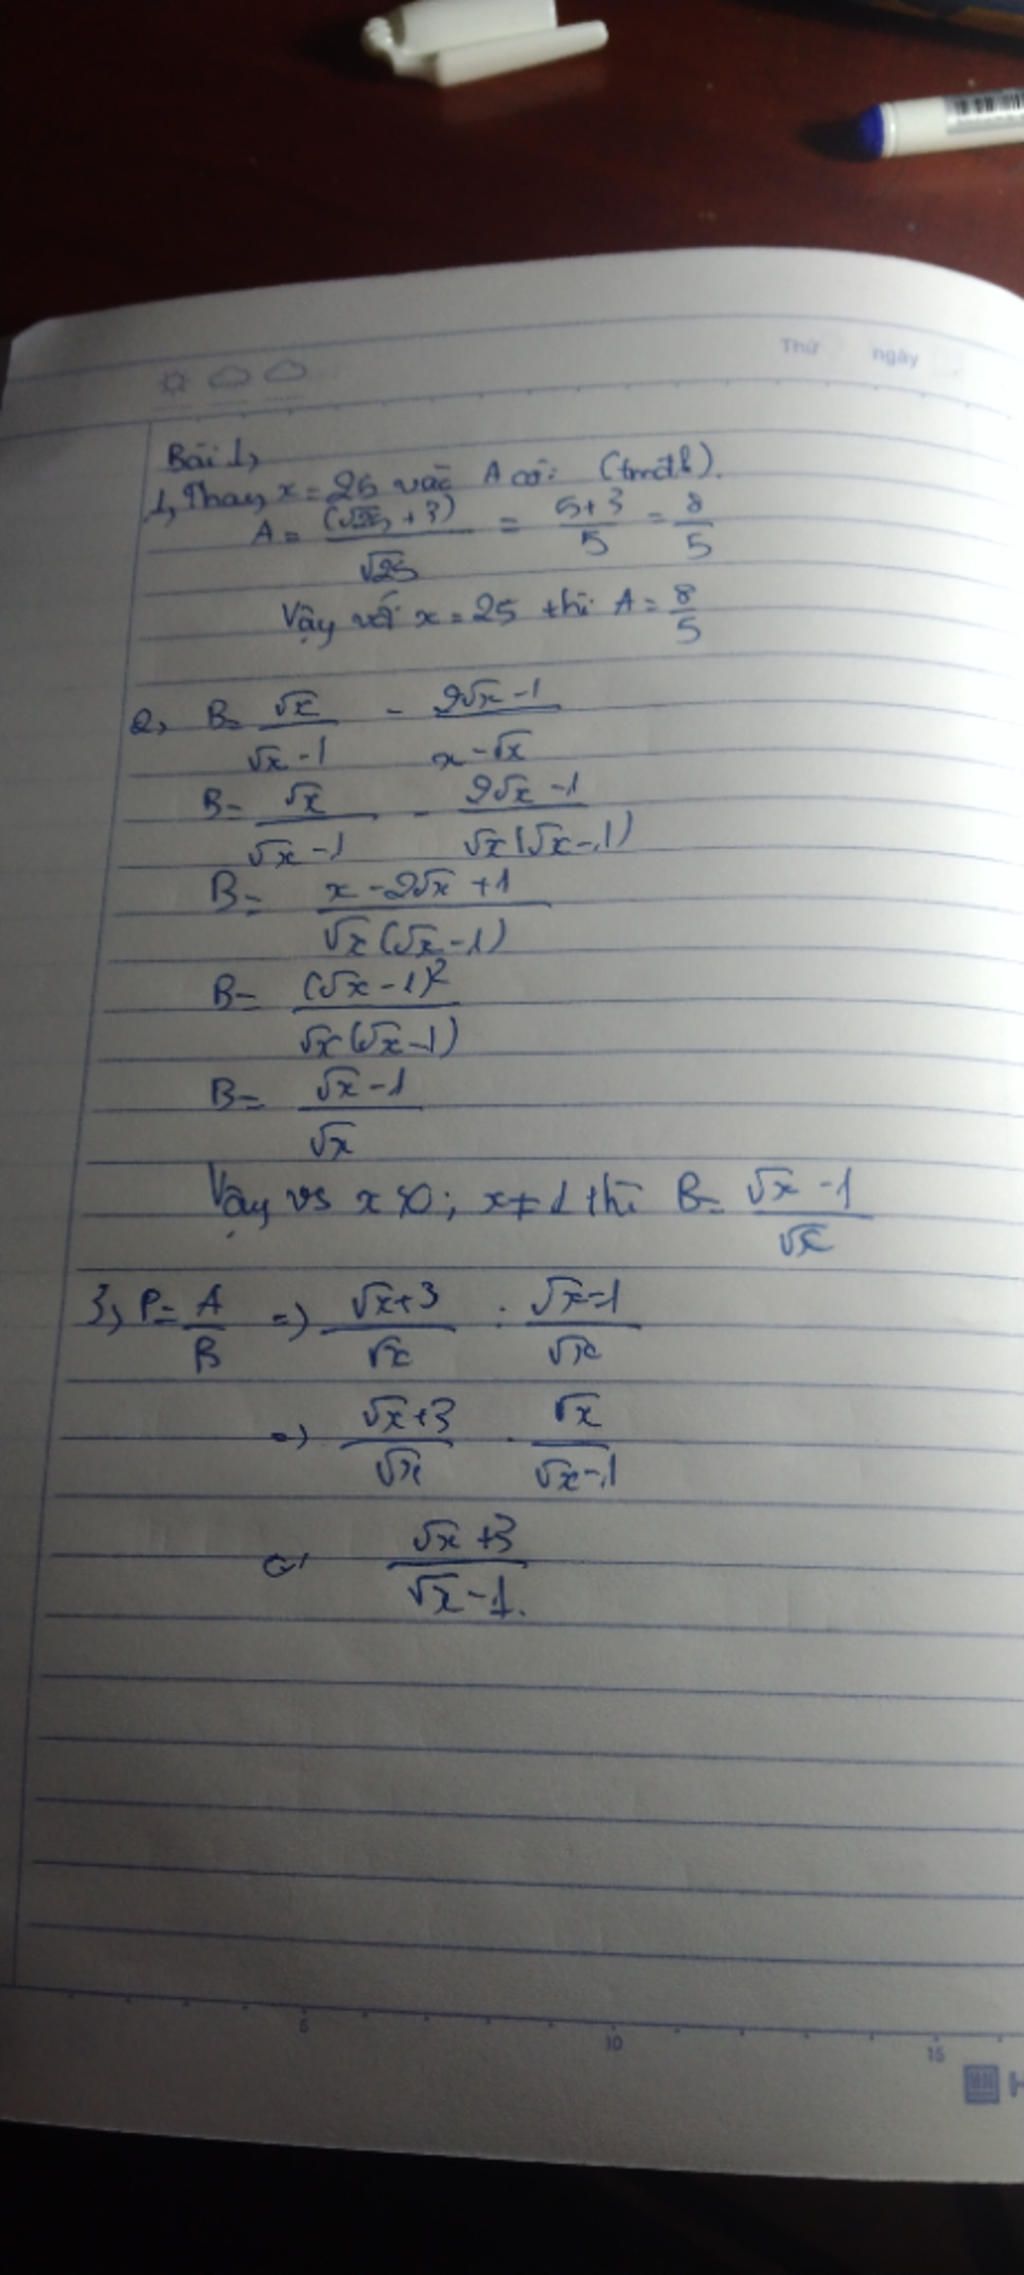 Thứ ngày
Bài 1,
1, Thay x = 25 vào A có: (tmđk).
A = (√25 + 3) / √25 = 5+3 / 5 = 8/5
Vậy với x = 25 thì A = 8/5
2, B = √x / √x - 1 - 2√x - 1 / x - √x
B = √x / √x - 1 - 2√x - 1 / √x(√x - 1)
B = x - 2√x + 1 / √x(√x - 1)
B = (√x - 1)² / √x(√x - 1)
B = √x - 1 / √x
Vậy vs x > 0; x ≠ 1 thì B = √x - 1 / √x
3, P = A/B => √x + 3 / √x : √x - 1 / √x
=> √x + 3 / √x . √x / √x - 1
√x + 3 / √x - 1.
5 10 15